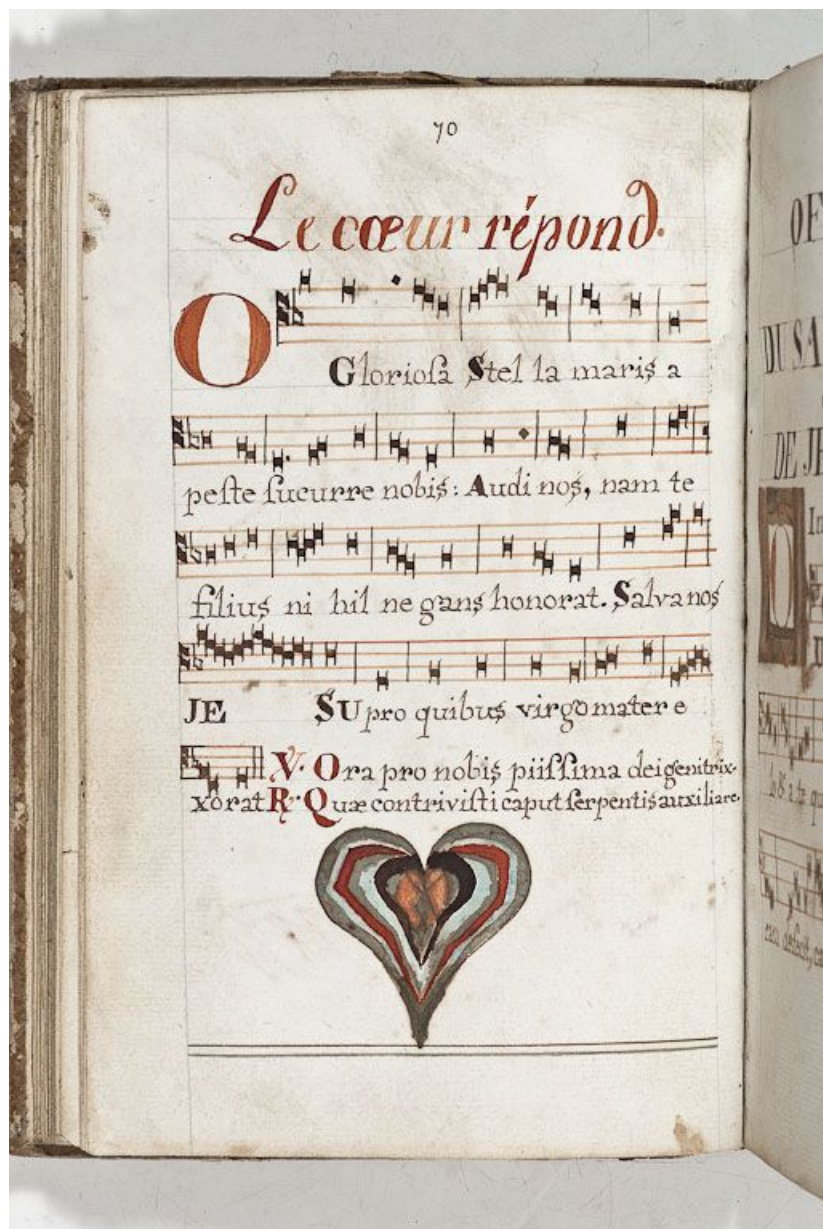 70
Le cœur répond.
O Glorioſa Stel la maris a
peſte ſucurre nobis: Audi nos, nam te
filius ni hil ne gans honorat. Salva nos
JE SU pro quibus virgo mater e
V. Ora pro nobis piiſſima dei genitrix.
xorat R. Quæ contriviſti caput ſerpentis auxiliare.
OF
DU SA
DE JE